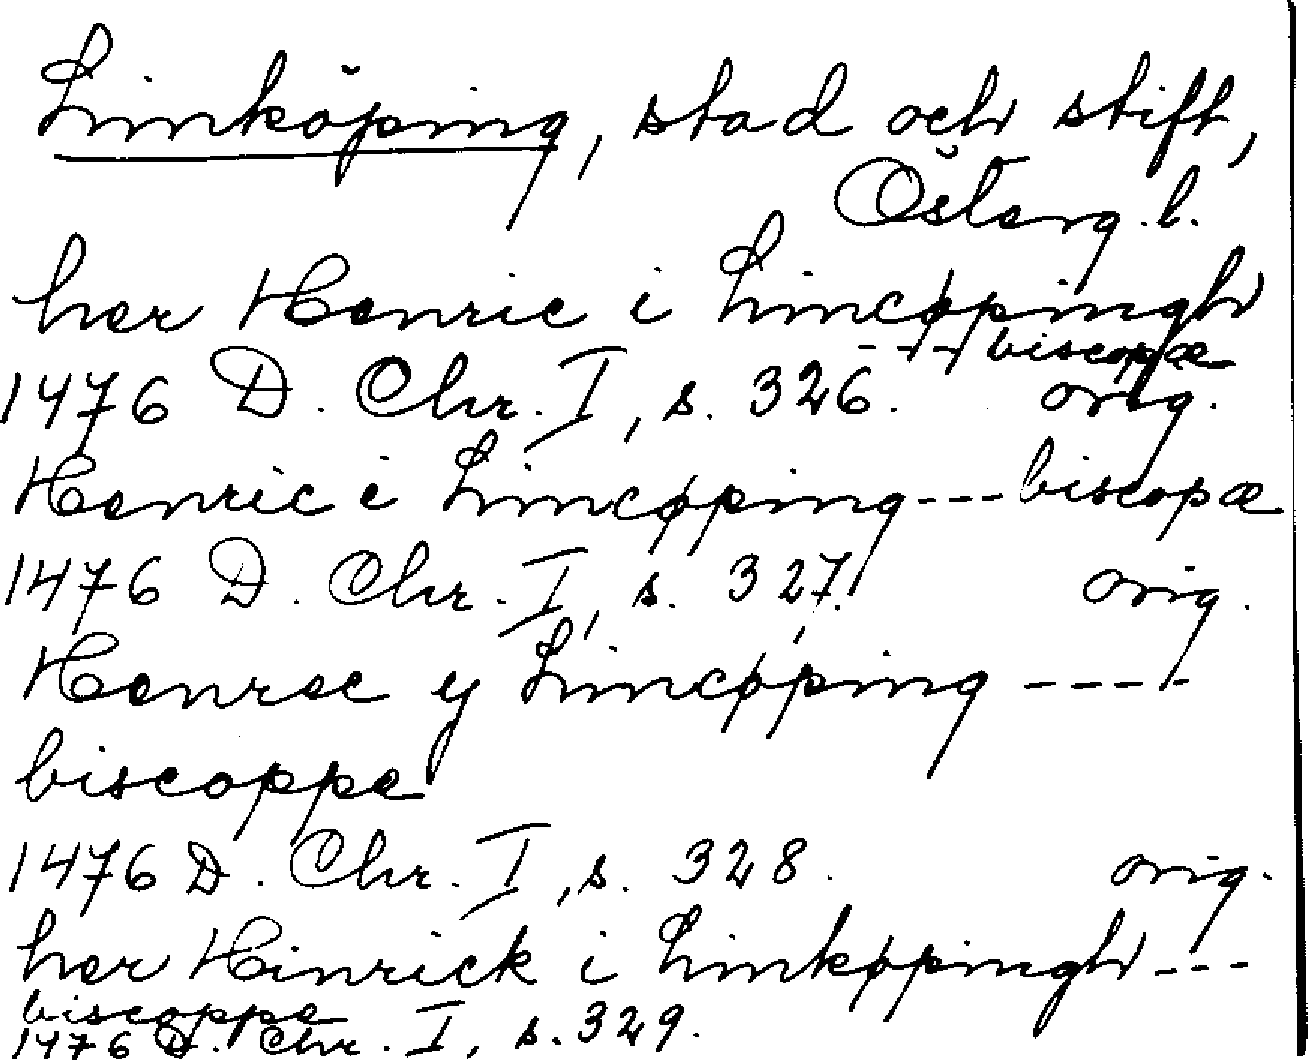 Linköping, stad och stift,
Österg. l.
her Henric i Lincøpingh
---- biscopæ
1476 D. Chr. I, s. 326. orig.
Henric i Lincøping --- biscopæ
1476 D. Chr. I, s. 327. orig.
Henrec y Lincøping ----
biscoppe
1476 D. Chr. I, s. 328. orig.
her Hinrick i Linkøpingh ---
biscoppe
1476 D. Chr. I, s. 329.